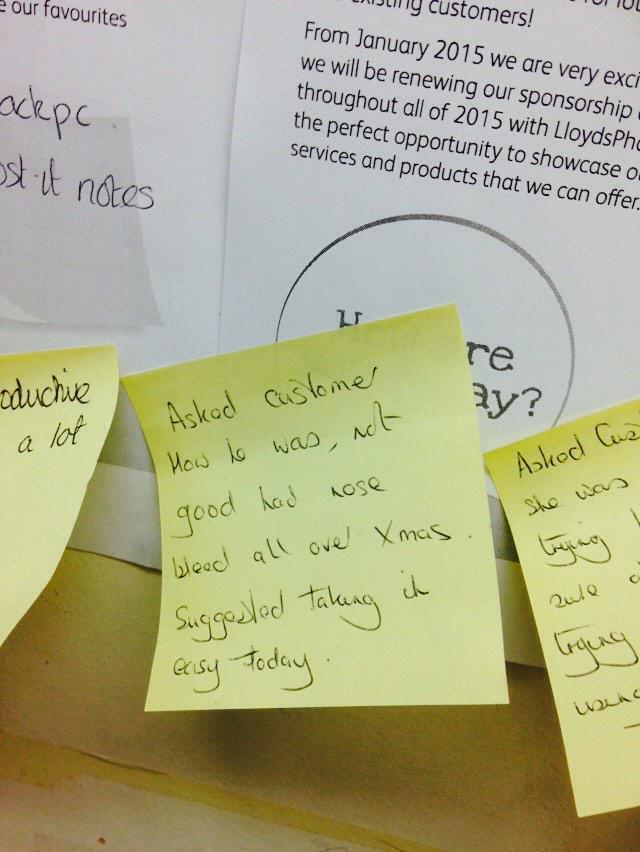 e our favourites
ackpc
ost-it notes
existing customers!
From January 2015 we are very exci
we will be renewing our sponsorship
throughout all of 2015 with LloydsPha
the perfect opportunity to showcase o
services and products that we can offer.
How are
ay?
oductive
a lot
Asked customer
How he was, not
good had nose
bleed all over Xmas.
Suggested taking it
easy today.
Asked Cus
she was
trying
trying